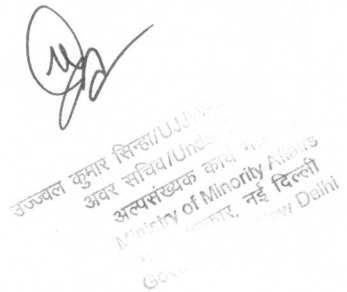 उज्ज्वल कुमार सिन्हा/UJJW
अवर सचिव/Under
अल्पसंख्यक कार्य
Ministry of Minority Affairs
नई दिल्ली
New Delhi